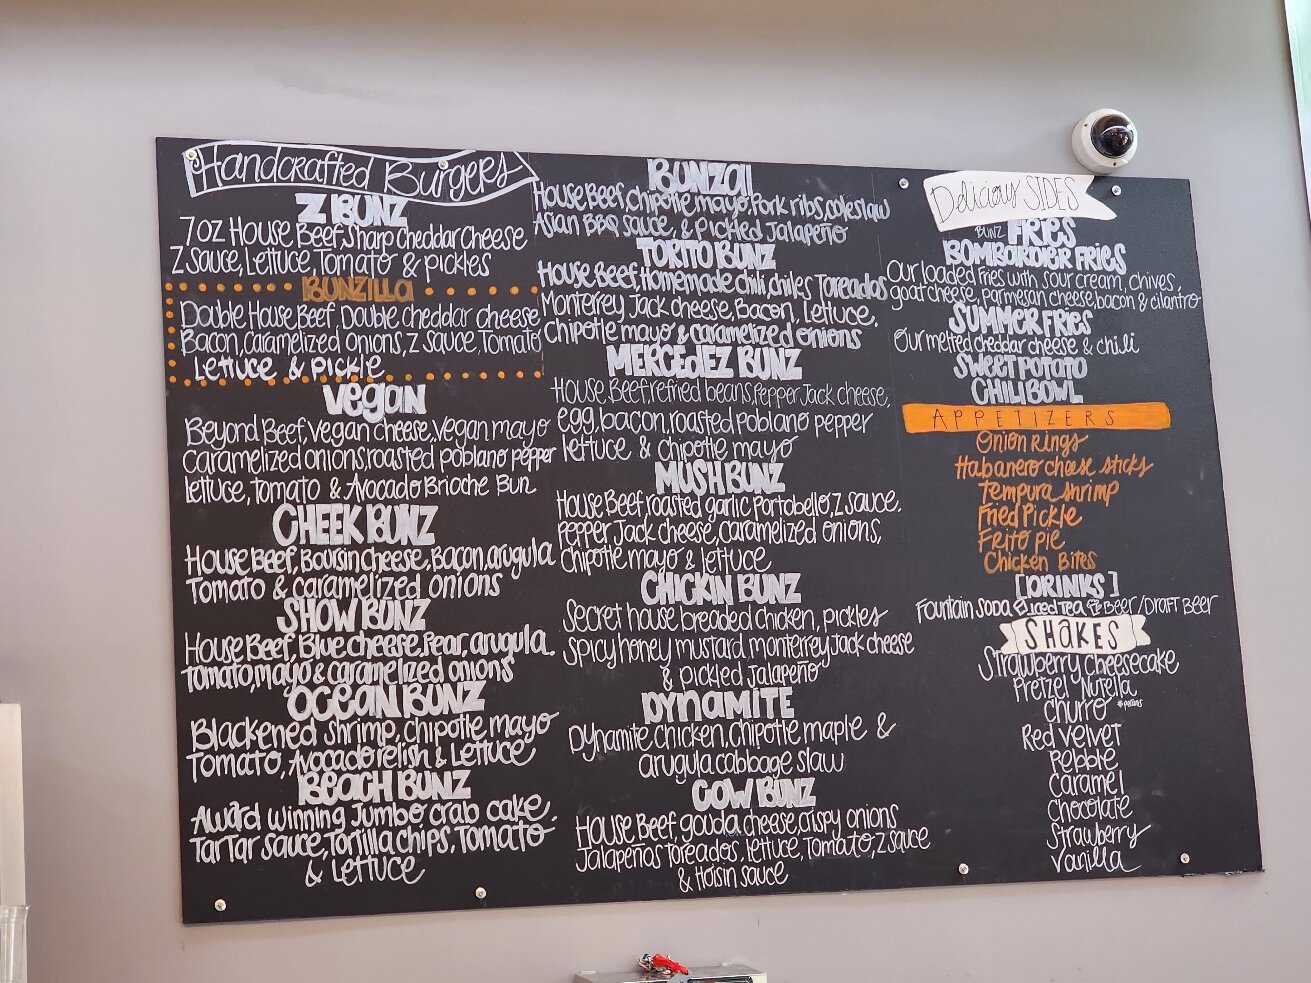 Handcrafted Burgers
Z BUNZ
7oz House Beef, sharp cheddar cheese
Z sauce, Lettuce, Tomato & pickles
BUNZILLA
Double House Beef, Double cheddar cheese
Bacon, caramelized onions, Z sauce, Tomato
Lettuce & pickle
Vegan
Beyond Beef, vegan cheese, vegan mayo
caramelized onions, roasted poblano pepper
lettuce, Tomato & Avocado Brioche Bun
CHEEK BUNZ
House Beef, Boursin cheese, Bacon, arugula
Tomato & caramelized onions
SHOW BUNZ
House Beef, Blue cheese, Pear, arugula,
tomato, mayo & caramelized onions
OCEAN BUNZ
Blackened shrimp, chipotle mayo
Tomato, Avocado relish & Lettuce
BEACH BUNZ
Award winning Jumbo crab cake,
Tartar sauce, Tortilla chips, Tomato
& Lettuce
BUNZai
House Beef, chipotle mayo, Pork ribs, coleslaw
Asian BBQ sauce, & Pickled Jalapeño
TORITO BUNZ
House Beef, Homemade chili, chiles Toreados
Monterrey Jack cheese, Bacon, Lettuce,
chipotle mayo & caramelized onions
MERCedEZ BUNZ
House Beef, refried beans, Pepper Jack cheese,
egg, bacon, roasted poblano pepper
lettuce & chipotle mayo
MUSH BUNZ
House Beef, roasted garlic Portobello, Z sauce,
pepper Jack cheese, caramelized onions,
chipotle mayo & lettuce
CHICKIN BUNZ
Secret house breaded chicken, pickles
Spicy honey mustard monterrey Jack cheese
& pickled Jalapeño
DYNAMITE
Dynamite chicken, Chipotle maple &
arugula cabbage slaw
COW BUNZ
House Beef, gouda cheese, crispy onions
Jalapeñas Toreados, lettuce, Tomato, Z sauce
& Hoisin sauce
Delicious SIDES
BUNZ FRIES
BOMBARDIER FRIES
Our loaded fries with sour cream, chives,
goat cheese, parmesan cheese, bacon & cilantro
SUMMER FRIES
Our melted cheddar cheese & chili
SWEET POTATO
CHILI BOWL
APPETIZERS
Onion Rings
Habanero cheese sticks
Tempura shrimp
Fried Pickle
Frito pie
Chicken Bites
[DRINKS]
Fountain soda & Iced Tea Beer/Draft Beer
SHAKES
Strawberry cheesecake
Pretzel Nutella
Churro
Red velvet
Pebble
Caramel
Chocolate
Strawberry
Vanilla